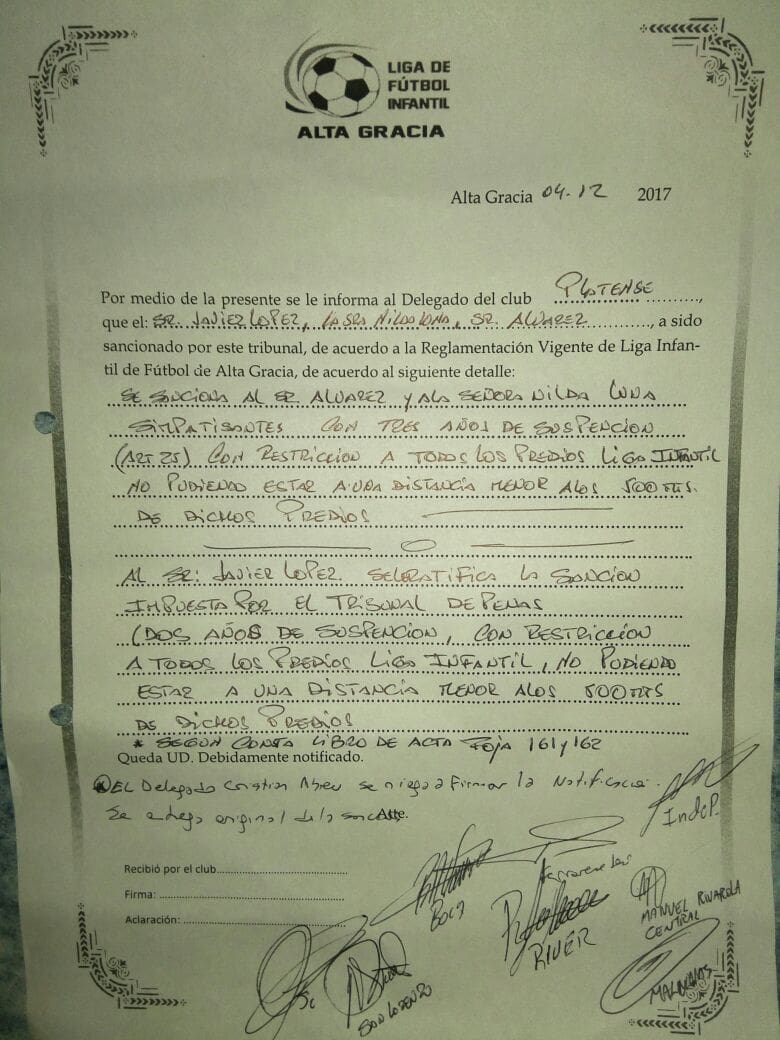 LIGA DE
FÚTBOL
INFANTIL
ALTA GRACIA
Alta Gracia 04-12 2017
Por medio de la presente se le informa al Delegado del club PLATENSE ..........,
que el: SR. JAVIER LOPEZ, LA SRA NILDA LUNA, SR. ALVAREZ ............, a sido
sancionado por este tribunal, de acuerdo a la Reglamentación Vigente de Liga Infan-
til de Fútbol de Alta Gracia, de acuerdo al siguiente detalle:
SE SANCIONA AL SR. ALVAREZ Y A LA SEÑORA NILDA LUNA
SIMPATISANTES CON TRES AÑOS DE SUSPENCION
(ART 25) CON RESTRICCION A TODOS LOS PREDIOS LIGA INFANTIL
NO PUDIENDO ESTAR A UNA DISTANCIA MENOR A LOS 500 MTS.
DE DICHOS PREDIOS
AL SR: JAVIER LOPEZ SE LE RATIFICA LA SANCION
IMPUESTA POR EL TRIBUNAL DE PENAS
(DOS AÑOS DE SUSPENCION, CON RESTRICCION
A TODOS LOS PREDIOS LIGA INFANTIL, NO PUDIENDO
ESTAR A UNA DISTANCIA MENOR A LOS 500 MTS
DE DICHOS PREDIOS
* SEGUN CONSTA LIBRO DE ACTA FOJA 161 y 162
Queda UD. Debidamente notificado.
EL Delegado Cristian Abreu se niega a Firmar la Notificacion.
Se entrega original de la sancion. Atte.
IndeP.
Recibió por el club..........................................
Firma: ..........................................
Aclaración: ..........................................
BOCA
RIVER
MANUEL RIVAROLA
CENTRAL
SAN LORENZO
MALVINAS